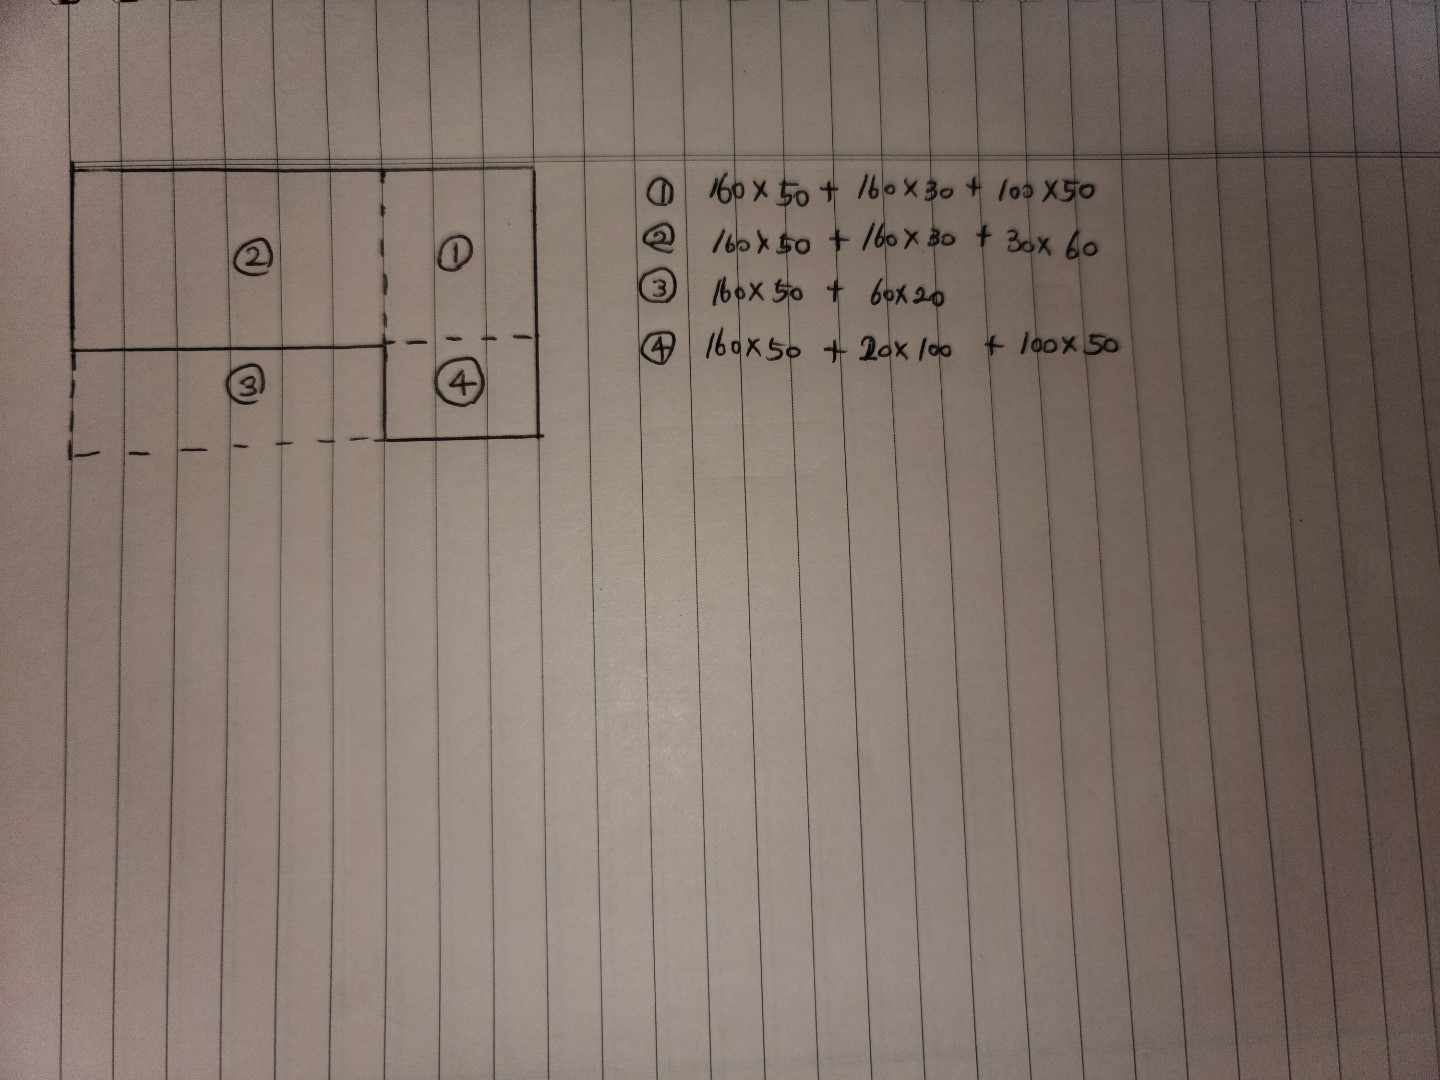 ②
①
③
④
① 160 × 50 + 160 × 30 + 100 × 50
② 160 × 50 + 160 × 30 + 30 × 60
③ 160 × 50 + 60 × 20
④ 160 × 50 + 20 × 100 + 100 × 50